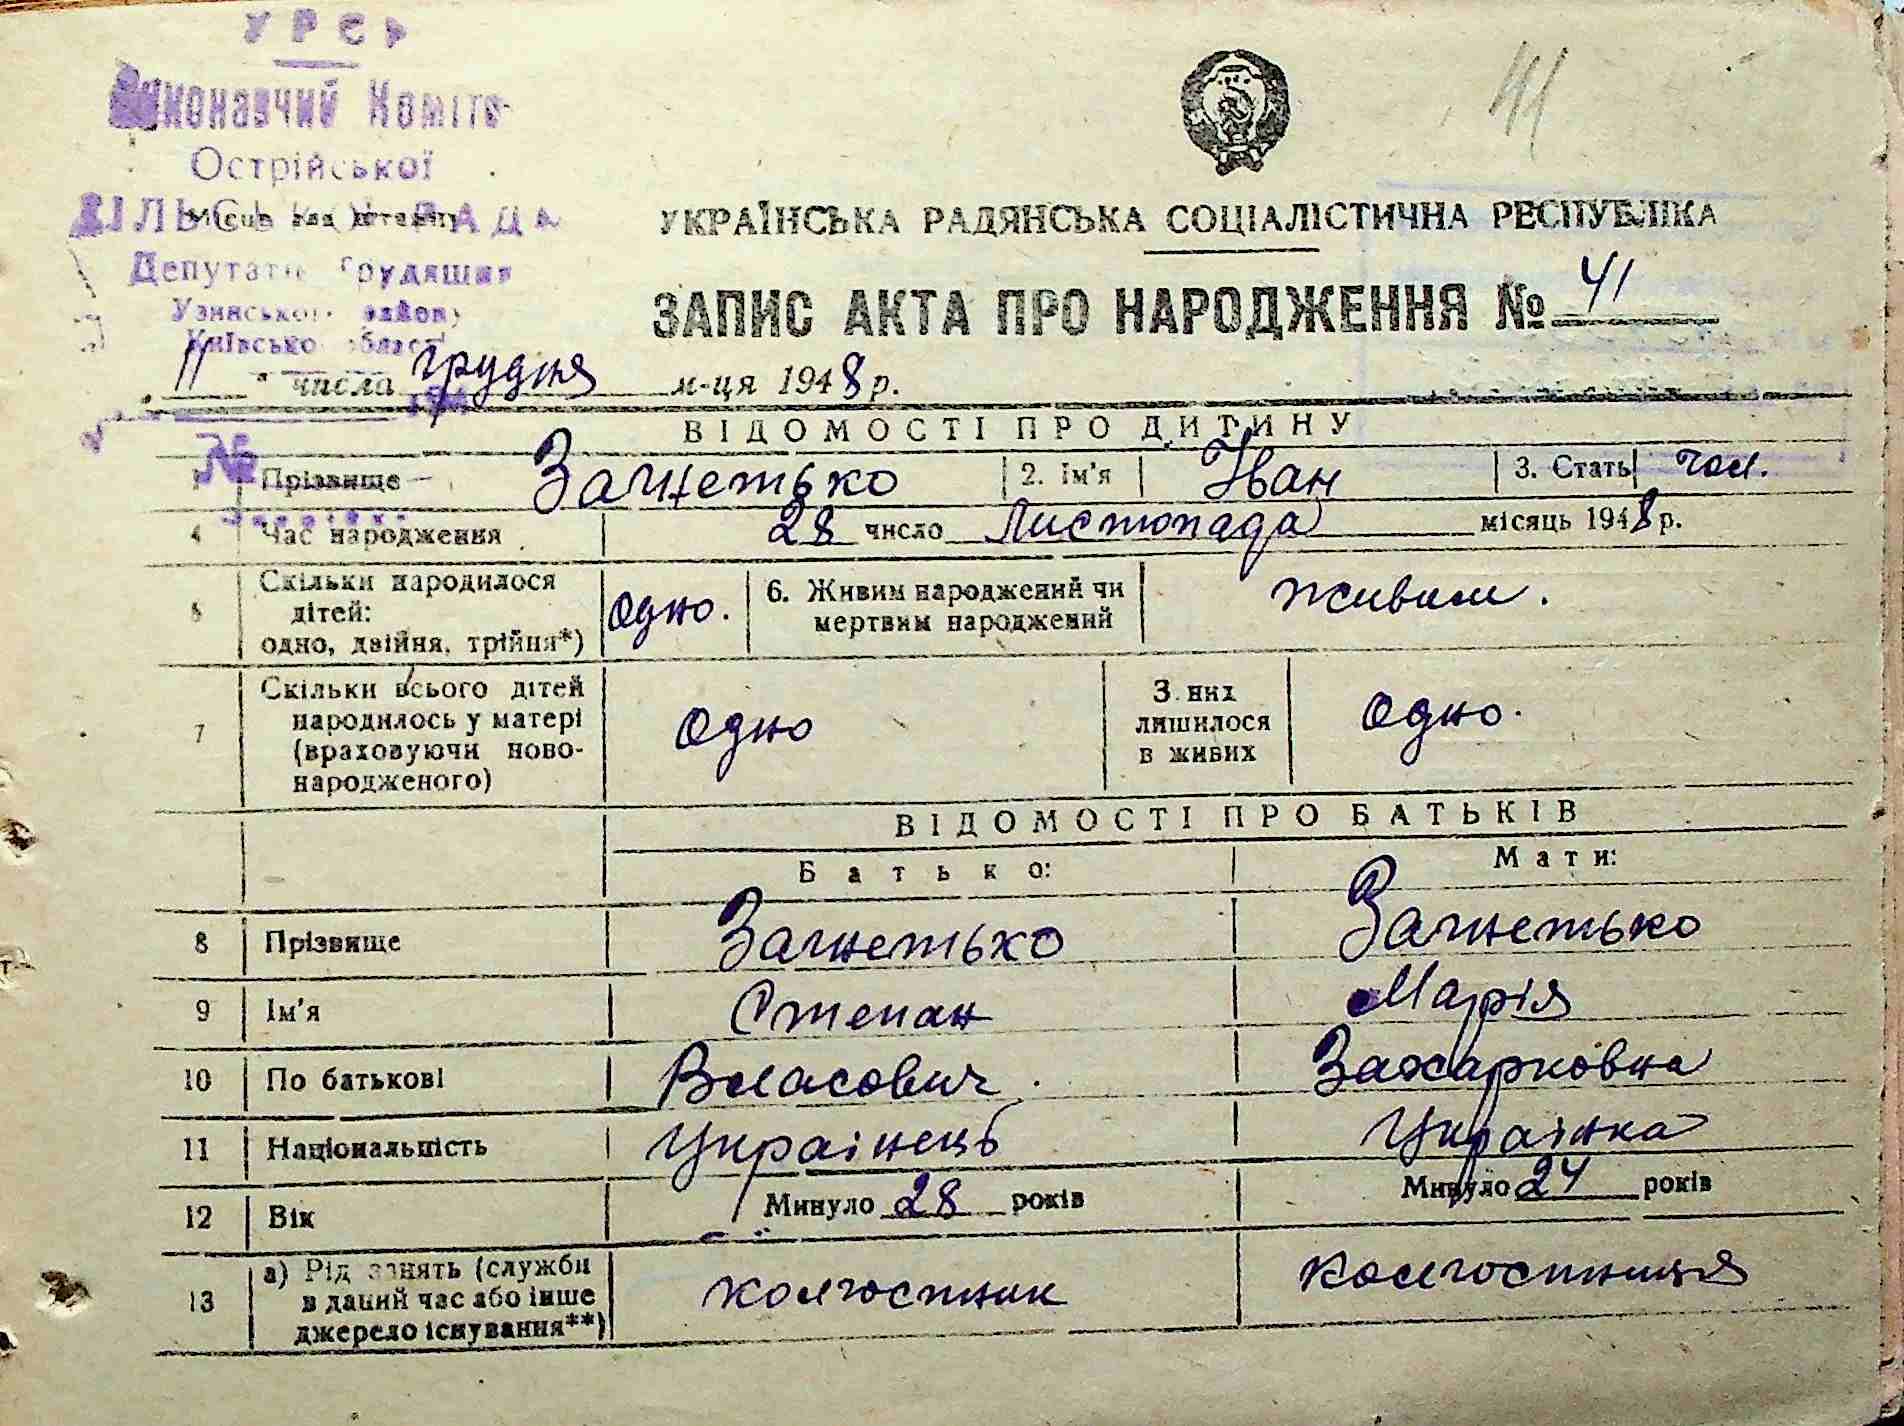 УРСР
Виконавчий Коміте
Острійської
СІЛЬСЬКОЇ РАДА
Депутатів Трудящих
Узинського району
Київської області
41
УКРАЇНСЬКА РАДЯНСЬКА СОЦІАЛІСТИЧНА РЕСПУБЛІКА
ЗАПИС АКТА ПРО НАРОДЖЕННЯ № 41
„11" числа грудня м-ця 1948 р.
№
ВІДОМОСТІ ПРО ДИТИНУ
Прізвище Загнетько 2. Ім'я Іван 3. Стать чол.
4 Час народження 28 число Листопада місяць 1948 р.
5 Скільки народилося дітей: одно, двійня, трійня*) одно. 6. Живим народжений чи мертвим народжений живим.
7 Скільки всього дітей народилось у матері (враховуючи новонародженого) одно З них лишилося в живих одно.
ВІДОМОСТІ ПРО БАТЬКІВ
Батько: Мати:
8 Прізвище Загнетько Загнетько
9 Ім'я Степан Марія
10 По батькові Власович Захарковна
11 Національність Українець Українка
12 Вік Минуло 28 років Минуло 24 років
13 а) Рід занять (служби в даний час або інше джерело існування**) колгоспник колгоспниця